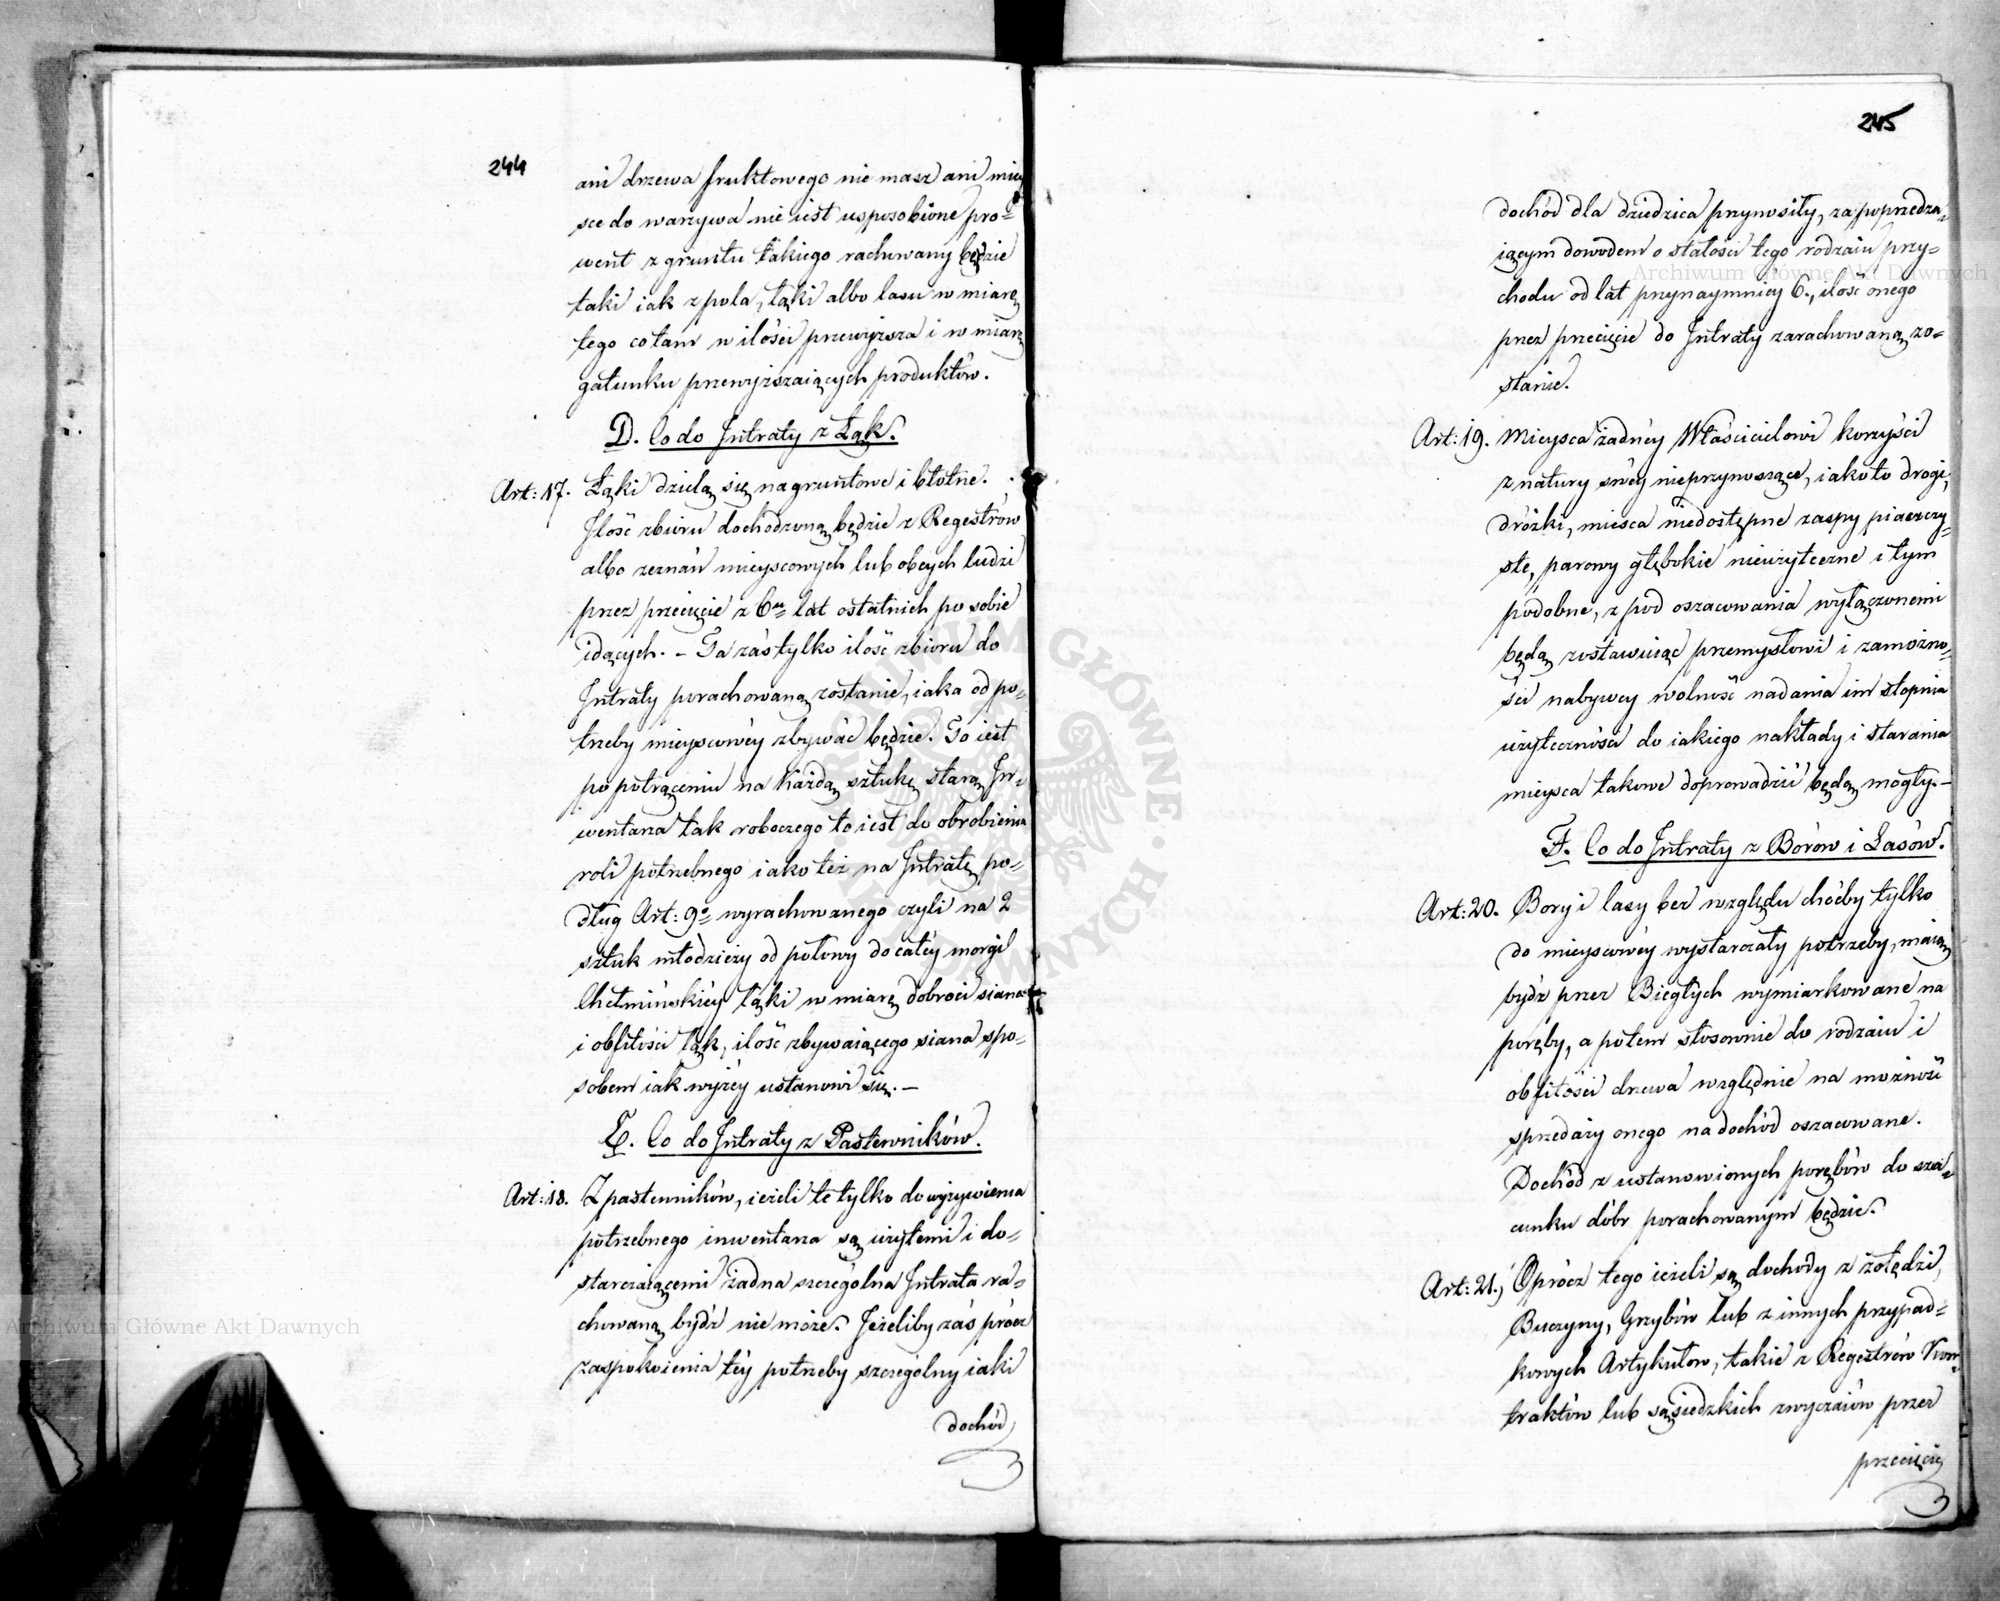 244
ani drzewa fruktowego nie masz ani miey
sce do warzywa nie iest usposobione pro=
went z gruntu takiego rachowany będzie
taki iak z pola, łąki albo lasu w miarę
tego co tam w ilości przewyższa i w miarę
gatunku przewyższaiących produktów.
D. Co do Intraty z Łąk.
Art: 17. Łąki dzielą się na gruntowe i błotne.
Ilość zbioru dochodzoną będzie z Regestrów
albo zeznań mieyscowych lub obcych ludzi
przez przecięcie z 6ciu lat ostatnich po sobie
idących. – Ta zaś tylko ilość zbioru do
Intraty porachowaną zostanie, iaka od po=
trzeby mieyscowéy zbywać będzie. To iest
po potrąceniu na Każdą sztukę starą In=
wentarza tak roboczego to iest do obrobienia
roli potrzebnego iako też na Intratę po=
dług Art: 9o wyrachowanego czyli na 2
sztuk młodzieży od połowy do całéy morgi
Chełmińskiéy łąki w miarę dobroci siana
i obfitości łąk, ilość zbywaiącego siana spo=
sobem iak wyżéy ustanowi się. –
E. Co do Intraty z Pastewników.
Art: 18. Z pastewników, ieżeli te tylko do wyżywienia
potrzebnego inwentarza są użytemi i do=
starczaiącemi żadna szczególna Intrata ra=
chowaną bydź nie może. Jeżeliby zaś prócz
zaspokoienia téy potrzeby szczególny iaki
dochód
245
dochód dla dziedzica przynosiły, za poprzedza=
iącym dowodem o stałości tego rodzaiu przy=
chodu od lat przynaymniéy 6., ilość onego
przez przecięcie do Intraty zarachowaną zo=
stanie.
Art: 19. Mieysca żadnéy Właścicielowi korzyści
z natury swéy nieprzynoszące, iako to drogi,
dróżki, miesca niedostępne zaspy piaszczy=
ste, parowy głębokie nieużyteczne i tym
podobne, z pod oszacowania wyłączonemi
będą zostawuiąc przemysłowi i zamożno=
ści nabywcy wolność nadania im stopnia
użyteczności do iakiego nakłady i starania
mieysca takowe doprowadzić będą mogły. –
F. Co do Intraty z Borów i Lasów.
Art: 20. Bory i lasy bez względu choćby tylko
do mieyscowéy wystarczały potrzeby, maią
bydź przez Biegłych wymiarkowane na
poręby, a potem stosownie do rodzaiu i
obfitości drzewa względnie na możność
sprzedaży onego na dochód oszacowane.
Dochód z ustanowionych porębów do sza=
cunku dóbr porachowanym będzie.
Art: 21. Oprócz tego ieżeli są dochody z żołędzi,
Buczyny, Grzybów lub z innych przypad=
kowych Artykułów, takie z Regestrów Kon=
traktów lub sąsiedzkich zwyczaiów przez
przecięcie
Archiwum Główne Akt Dawnych
Archiwum Główne Akt Dawnych